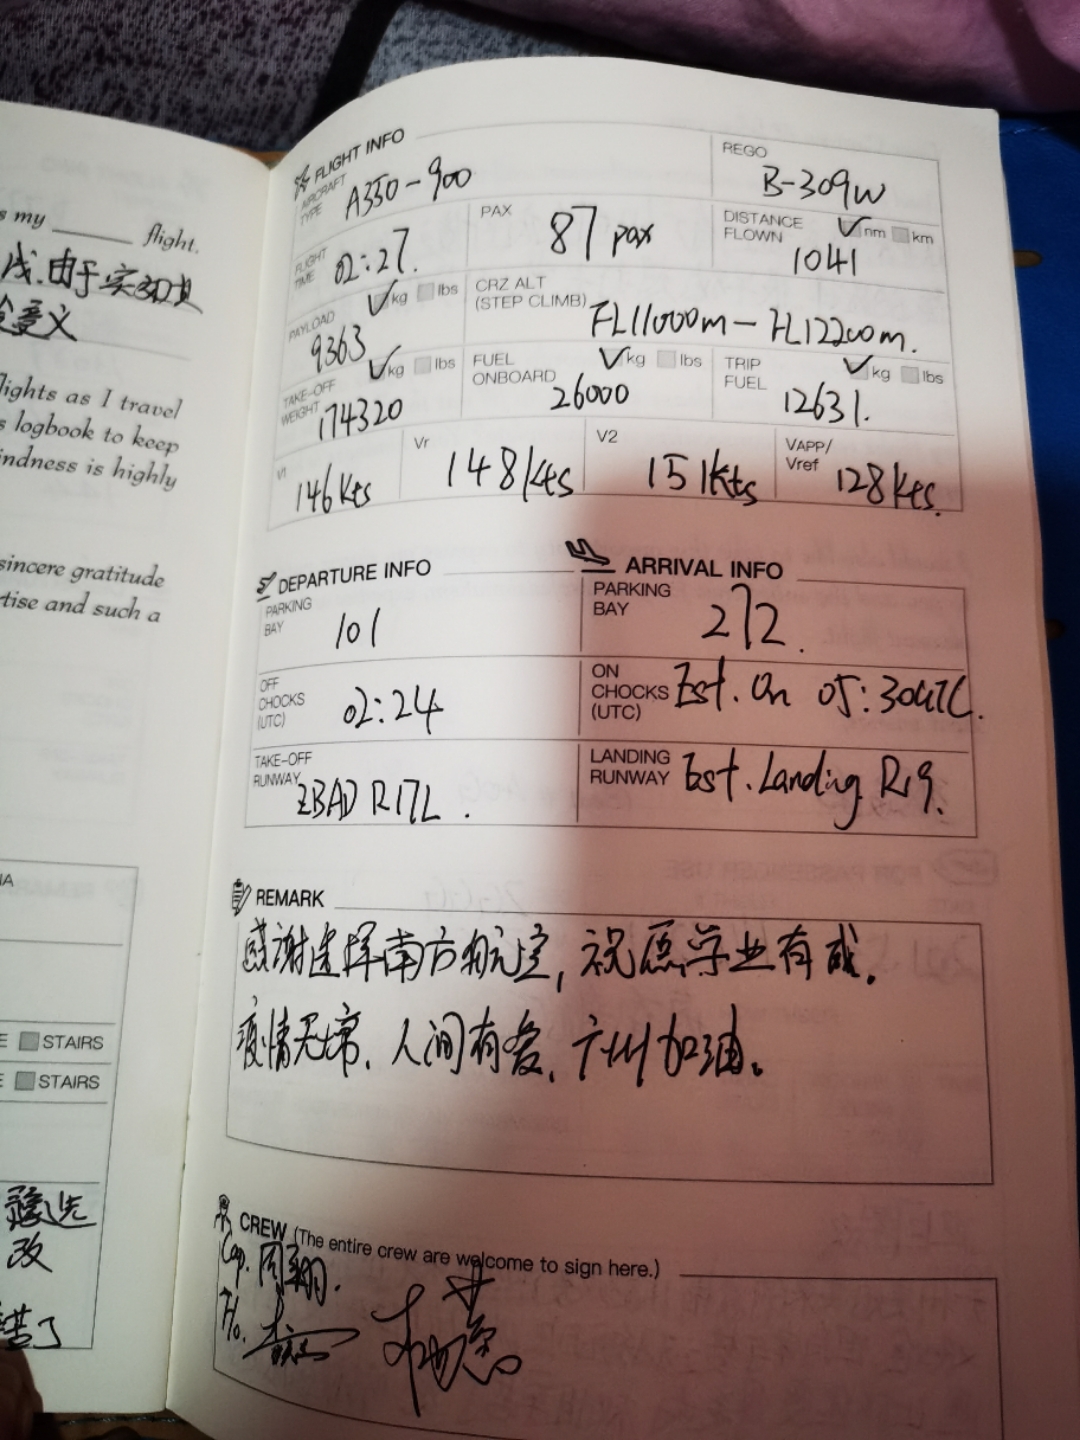 s my ______ flight.
由于实习
意义
lights as I travel
s logbook to keep
indness is highly
sincere gratitude
tise and such a
IA
E STAIRS
E STAIRS
改
苦了
FLIGHT INFO
AIRCRAFT TYPE A350-900
REGO B-309W
FLIGHT TIME 02:27.
PAX 87 pax
DISTANCE FLOWN ✓nm km 1041
PAYLOAD ✓kg lbs 9363
CRZ ALT (STEP CLIMB) FL11000m - FL12200m.
TAKE-OFF WEIGHT ✓kg lbs 174320
FUEL ONBOARD ✓kg lbs 26000
TRIP FUEL ✓kg lbs 12631.
V1 146kts
Vr 148kts
V2 151kts
VAPP/Vref 128kts.
DEPARTURE INFO
PARKING BAY 101
OFF CHOCKS (UTC) 02:24
TAKE-OFF RUNWAY ZBAD R17L.
ARRIVAL INFO
PARKING BAY 272.
ON CHOCKS (UTC) Est. On 05:30UTC.
LANDING RUNWAY Est. Landing R19.
REMARK
感谢选择南方航空,祝愿学业有成.
疫情无情.人间有爱.广州加油。
CREW (The entire crew are welcome to sign here.)
Cap. 周翔.